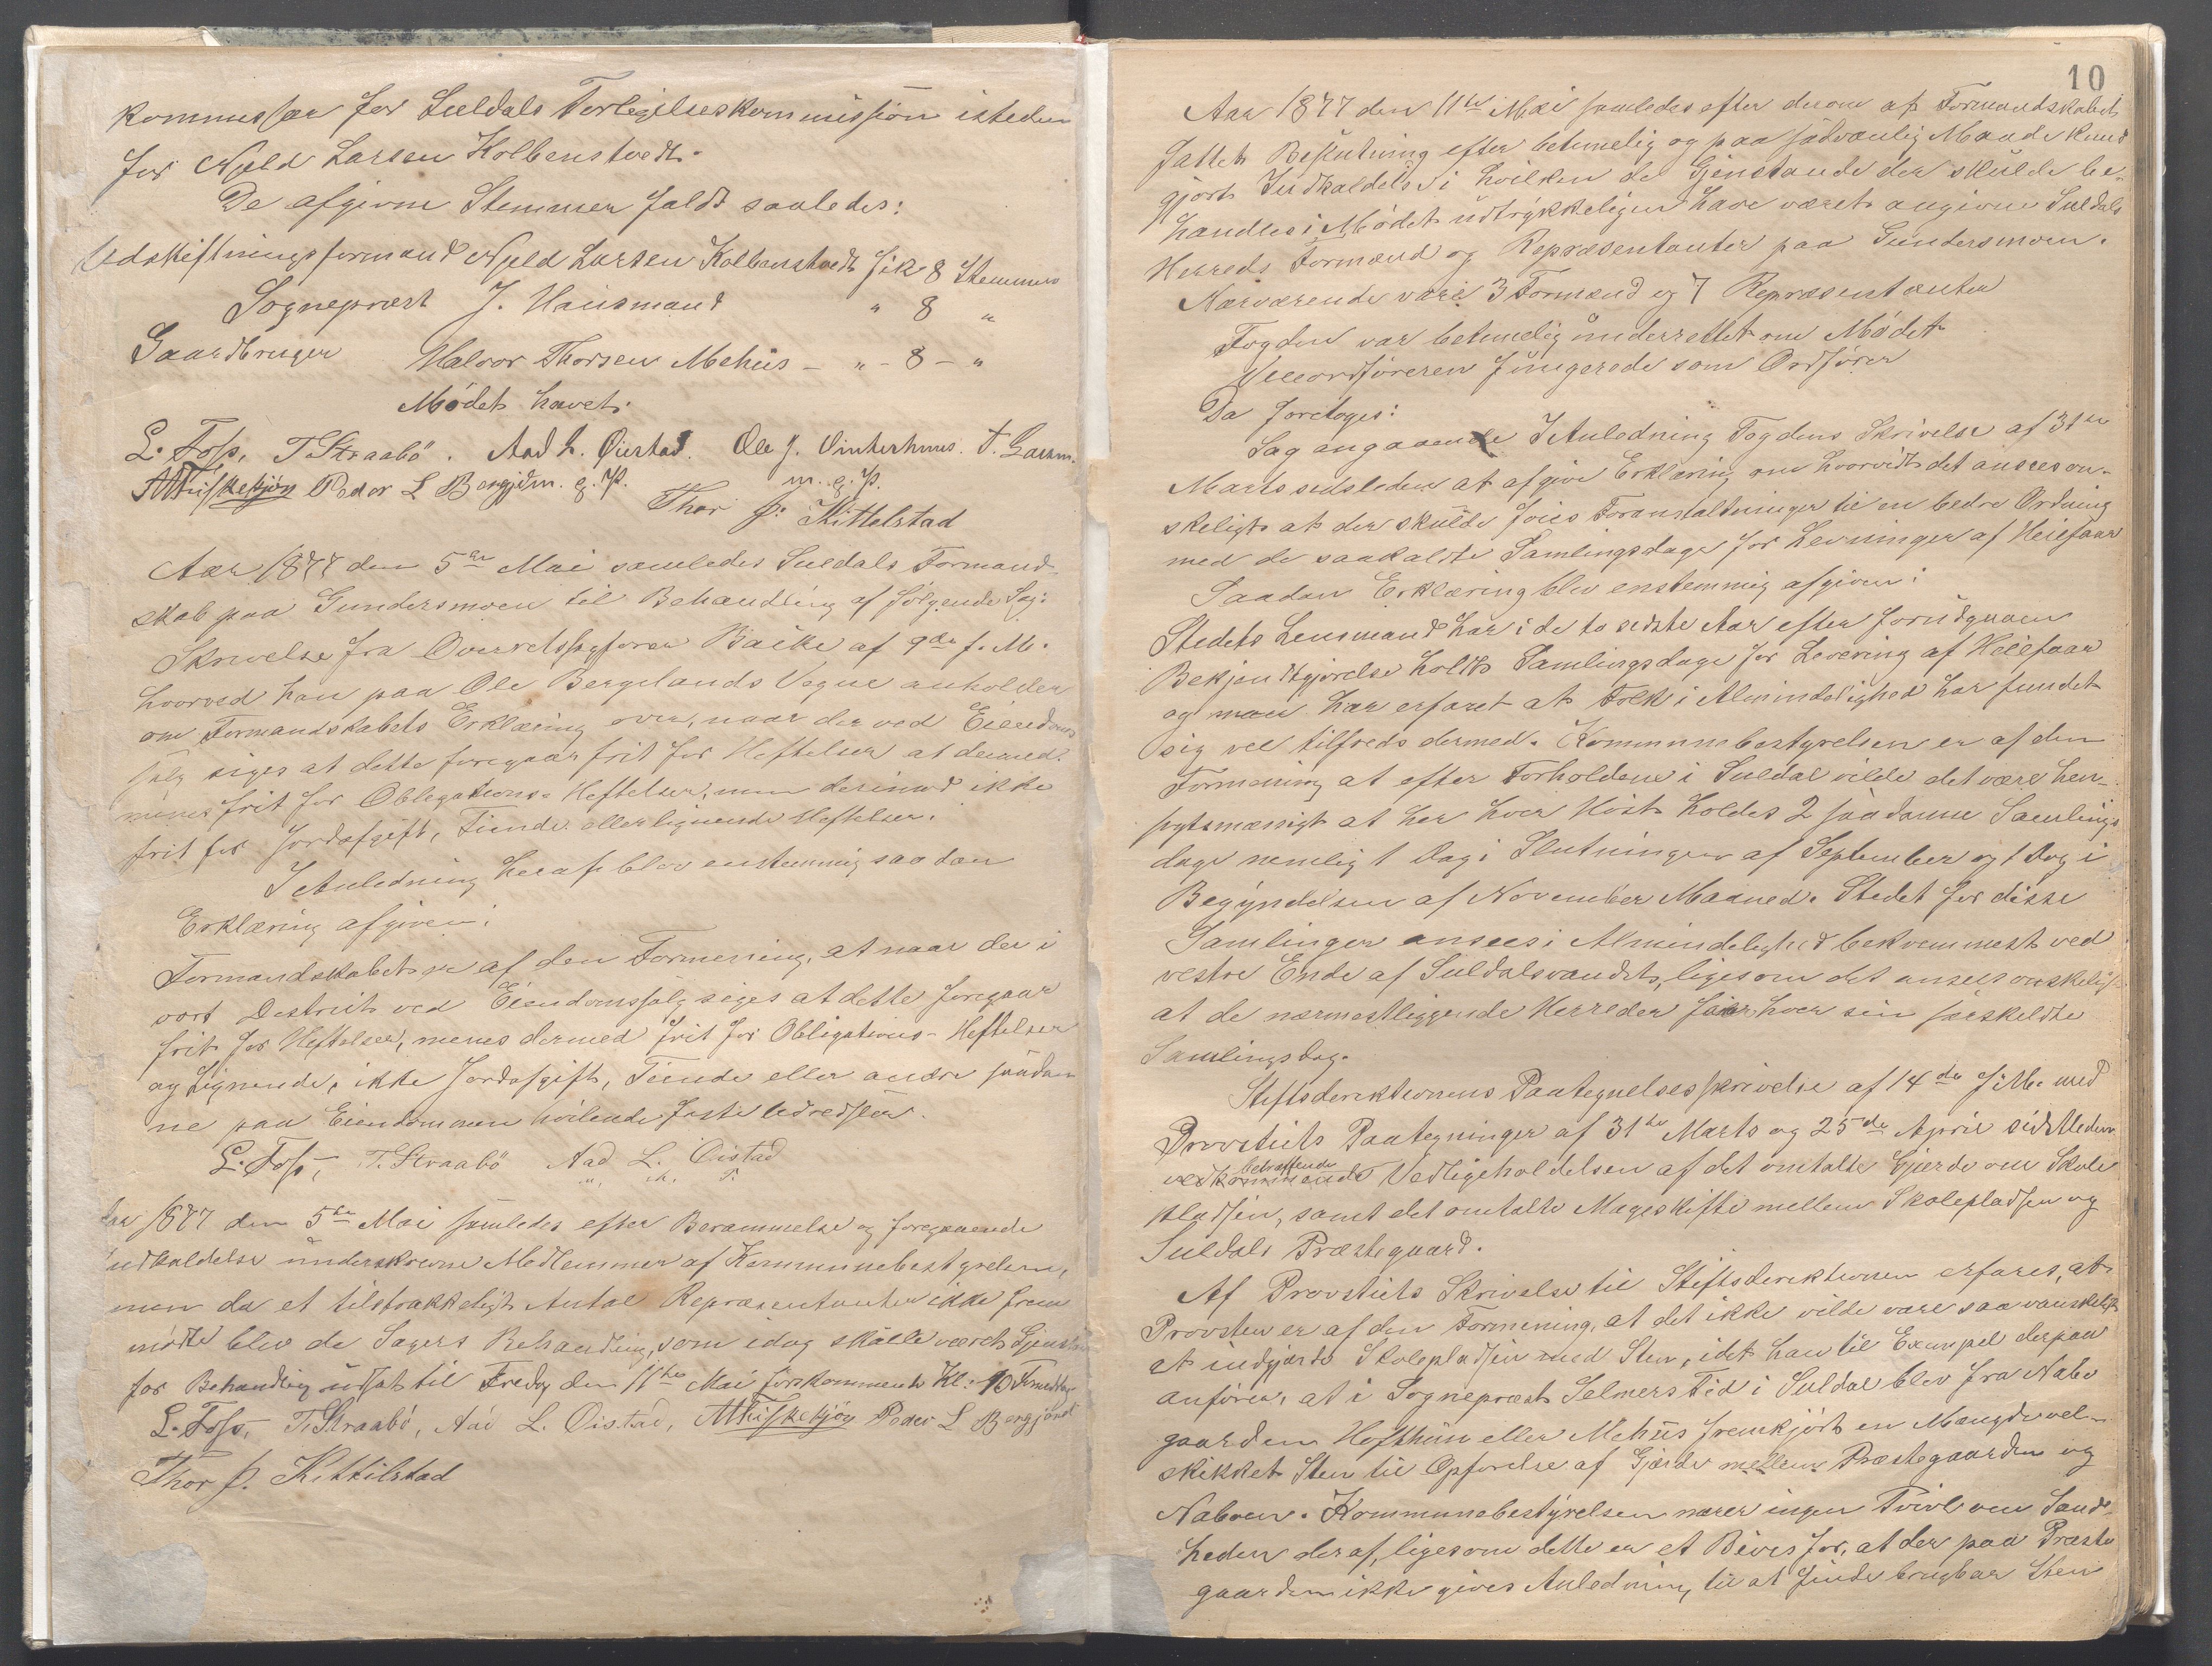 kommissær for Suldals Forligelseskommission isteden
for Njeld Larsen Kolbenstvedt.
De afgivne Stemmer faldt saaledes:
Udskiftningsformand Njeld Larsen Kolbenstvedt fik 8 Stemmer
Sogneprest J. Hausmand " 8 "
Gaardbruger Halvor Thorsen Mehus - " - 8 - "
Mødet hævet.
L. Foss, T. Straabø. Aad L. Øistad. Ole J. Vinterhuus. T. Garm.
Peder L Bergjd m. g. P. m. g. P.
Thor J: Kittelstad
Aar 1877 den 5te Mai samledes Suldals Formand-
skab paa Gundersmoen til Behandling af følgende Sag:
Skrivelse fra Overretssagfører Bache af 9de f. M.
hvorved han paa Ole Bergelands Vegne anholder
om Formandskabets Erklæring over, naar der ved Eiendoms
salg siges at dette foregaar frit for Heftelser at dermed
menes frit for Obligations-Heftelser, men derimod ikke
frit for Jordafgift, Tiende eller lignende Heftelser.
I Anledning heraf blev enstemmig saadan
Erklæring afgiven:
Formandskabet er af den Formening, at naar der i
vort Destrict ved Eiendomssalg siges at dette foregaar
frit for Heftelser, menes dermed frit for Obligations-Heftelser
og Lignende, ikke Jordafgift, Tiende eller andre saadan
ne paa Eiendommen hvilende faste Udredsler.
L. Foss, T. Straabø Aad L. Øistad
m. g. P.
Aar 1877 den 5te Mai samledes efter Berammelse og foregaaende
Indkaldelse underskrevne Medlemmer af Kommunebestyrelsen,
men da et tilstrækkeligt Antal Repræsentanter ikke frem
mødte blev de Sagers Behandling, som idag skulle været Gjenstand
for Behandling udsat til Fredag den 11te Mai førstkommende Kl. 10 Formiddag
L. Foss, T. Straabø, Aad L. Oistad, Peder L Bergjord
Thor J. Kittilstad
10
Aar 1877 den 11te Mai samledes efter derom af Formandskabet
fattet Beslutning efter betimelig og paa sædvanlig Maade kund
gjort Indkaldelse i hvilken de Gjenstande der skulde be-
handles i Mødet udtrykkeligen have været angivne Suldals
Herreds Formænd og Repræsentanter paa Gundersmoen.
Nærværende vare 3 Formænd og 7 Repræsentanter
Fogden var betimelig underrettet om Mødet
Viceordføreren fungerede som Ordfører
Da foretoges:
Sag angaaende I Anledning Fogdens Skrivelse af 31te
Marts sidstleden at afgive Erklæring om hvorvidt det ansees øn-
skeligt at der skulde føies Foranstaltninger til en bedre Ordning
med de saakaldte Samlingsdage for Levninger af Heiefaar
Saadan Erklæring blev enstemmig afgiven:
Stedets Lensmand har i de to sidste Aar efter forudgaaen
Bekjendtgjørelse holdt Samlingsdage for Levering af Heiefaar
og man har erfaret at Folk i Almindelighed har fundet
sig vel tilfreds dermed. Kommunebestyrelsen er af den
Formening at efter Forholdene i Suldal vilde det være hen-
sigtsmæssigt at her hver Høst holdes 2 saadanne Samlings
dage nemlig 1 Dag i Slutningen af September og 1 Dag i
Begyndelsen af November Maaned. Stedet for disse
Samlinger ansees i Almindelighed bekvemmest ved
vestre Ende af Suldalsvandet, ligesom det ansees ønskeligt
at de nærmestliggende Herreder faar hver sin særskildte
Samlingsdag.
Stiftsdirektionens Paategnelsesskrivelse af 14de f. M. med
Provstiets Paategninger af 31te Marts og 25de April sidstleden
vedkommende betræffende Vedligeholdelsen af det omtalte Gjerde om Skole
pladsen, samt det omtalte Mageskifte mellem Skolepladsen og
Suldals Præstegaard.
Af Provstiets Skrivelse til Stiftsdirektionen erfares, at
Provsten er af den Formening, at det ikke vilde være saa vanskeligt
at indgjærde Skolepladsen med Sten, idet han til Exempel derpaa
anfører, at i Sogneprest Selmers Tid i Suldal blev fra Nabo
gaarden Hofthun eller Mehus fremkjørt en Mængde vel-
skikket Sten til Opførelse af Gjærde mellem Præstegaarden og
Naboen. Kommunebestyrelsen nærer ingen Tvivl om Sand-
heden deraf, ligesom dette er et Bevis for, at der paa Præste
gaarden ikke gives Anledning til at finde brugbar Sten